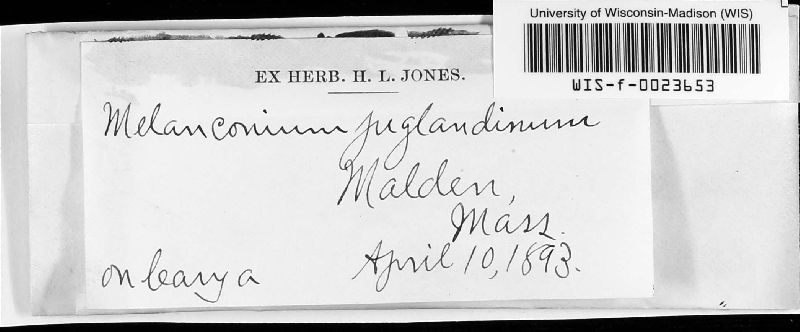 University of Wisconsin-Madison (WIS)
WIS-f-0023653
EX HERB. H. L. JONES.
Melanconium juglandinum
Malden,
Mass.
on Carya
April 10, 1893.